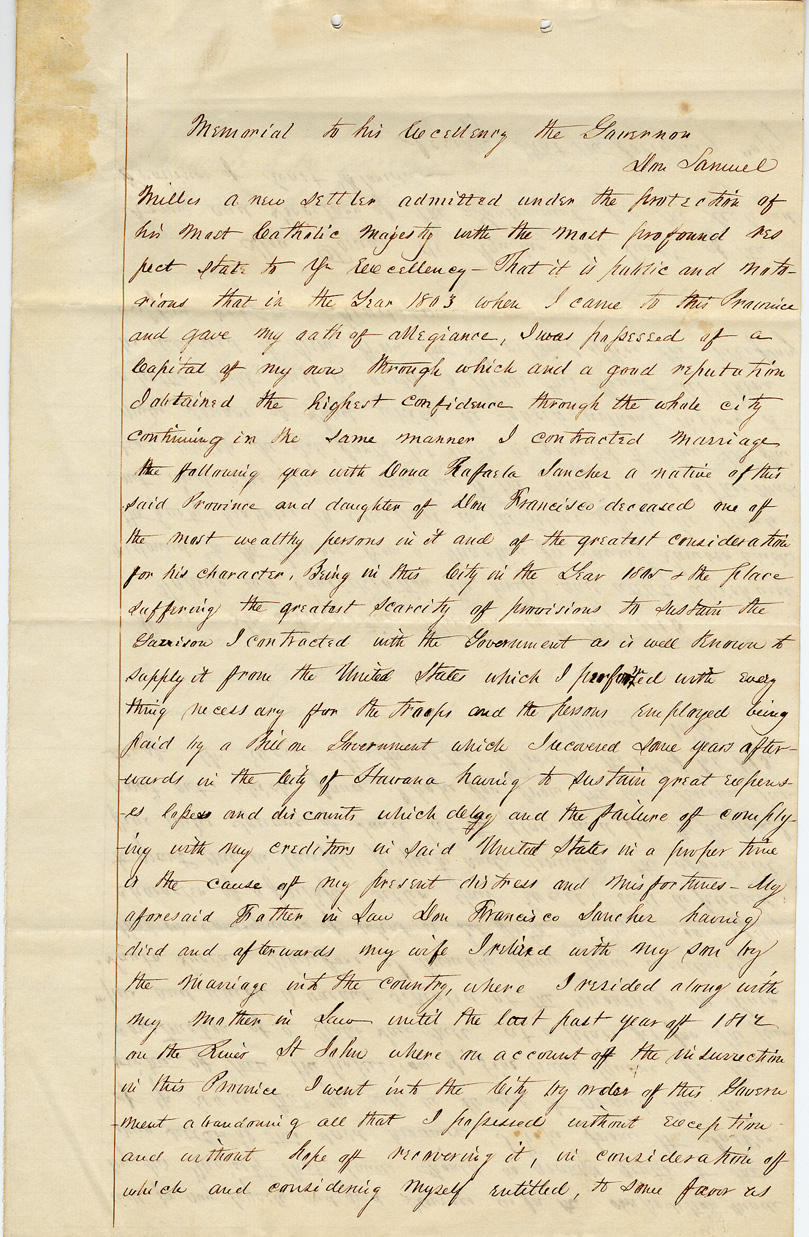 Memorial to his Excellency the Governor
Don Samuel
Milles a new settler admitted under the protection of
his Most Catholic Majesty with the most profound res
pect state to Yr Excellency - That it is public and noto-
rious that in the Year 1803 when I came to this Province
and gave my oath of allegiance, I was possessed of a
Capital of my own through which and a good reputation
I obtained the highest confidence through the whole city
continuing in the same manner I contracted marriage
the following year with Dona Rafaela Sanchez a native of this
said Province and daughter of Don Francisco deceased one of
the most wealthy persons in it and of the greatest consideration
for his character. Being in this City in the Year 1805 & the place
suffering the greatest scarcity of provisions to sustain the
Garrison I contracted with the Government as is well known to
supply it from the United States which I performed with every
thing necessary for the troops and the persons employed being
paid by a Bill on Government which I recovered some years after-
wards in the City of Havana having to sustain great expens-
es losses and discounts which delay and the failure of comply-
ing with my creditors in said United States in a proper time
is the cause of my present distress and misfortunes - My
aforesaid Father in Law Don Francisco Sanchez having
died and afterwards my wife I retired with my son by
the marriage into the country, where I resided along with
my mother in Law until the last past year off 1812
on the River St John where on account off the insurrection
in this Province I went into the City by order of this Govern
ment abandoning all that I possessed without exception
and without hope off recovering it, in consideration off
which and considering myself entitled, to some favor as